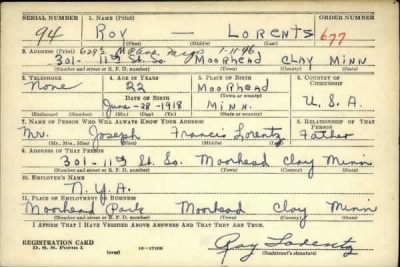 SERIAL NUMBER 1. NAME (Print) ORDER NUMBER
94 Roy — Lorentz 677
(First) (Middle) (Last)
2. ADDRESS (Print) 1-11-46
301-11th St. So. Moorhead Clay Minn
(Number and street or R. F. D. number) (Town) (County) (State)
3. TELEPHONE 4. AGE IN YEARS 5. PLACE OF BIRTH 6. COUNTRY OF CITIZENSHIP
None 22 Moorhead
DATE OF BIRTH (Town or county)
June-28-1918 Minn. U.S.A.
(Exchange) (Number) (Mo.) (Day) (Yr.) (State or country)
7. NAME OF PERSON WHO WILL ALWAYS KNOW YOUR ADDRESS 8. RELATIONSHIP OF THAT PERSON
Mr. Joseph Francis Lorentz Father
(Mr., Mrs., Miss) (First) (Middle) (Last)
9. ADDRESS OF THAT PERSON
301-11th St. So. Moorhead Clay Minn
(Number and street or R. F. D. number) (Town) (County) (State)
10. EMPLOYER'S NAME
N.Y.A.
11. PLACE OF EMPLOYMENT OR BUSINESS
Moorhead Park Moorhead Clay Minn
(Number and street or R. F. D. number) (Town) (County) (State)
I AFFIRM THAT I HAVE VERIFIED ABOVE ANSWERS AND THAT THEY ARE TRUE.
REGISTRATION CARD
D. S. S. Form 1 (over) Roy Lorentz
(Registrant's signature)